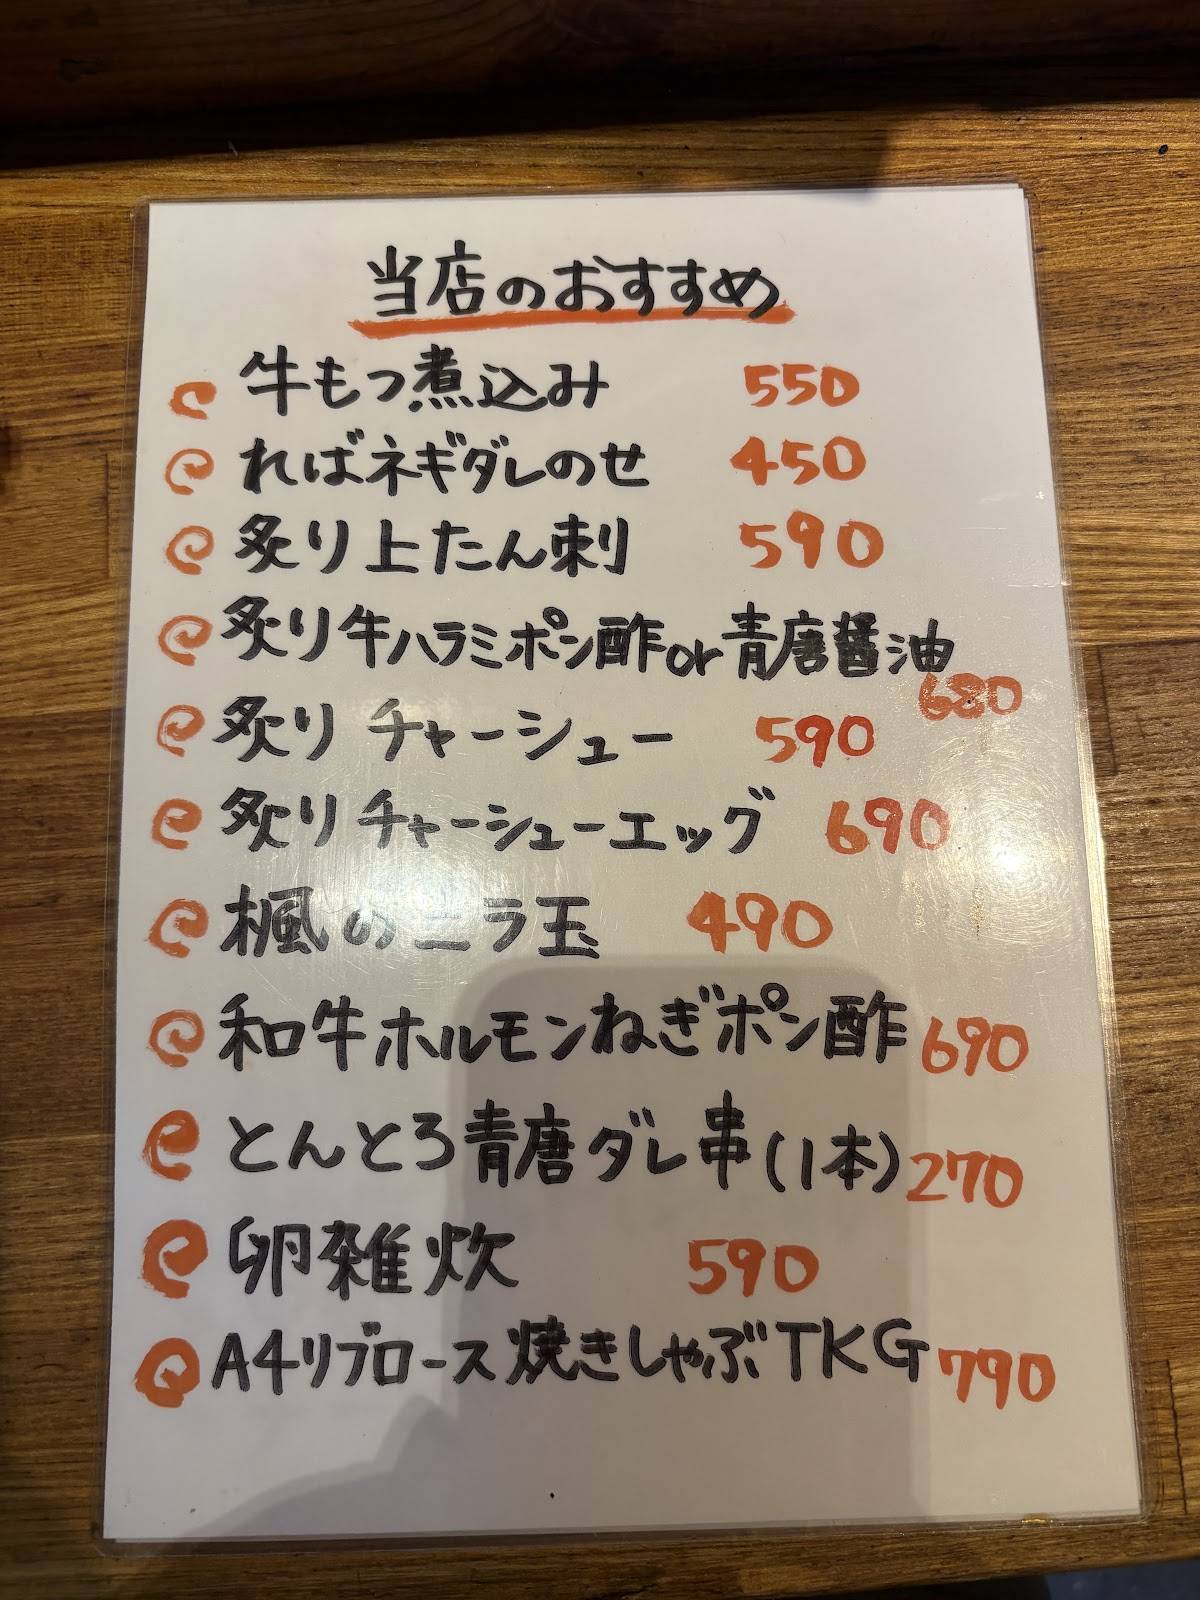 当店のおすすめ
牛もつ煮込み 550
ればネギダレのせ 450
炙り上たん刺 590
炙り牛ハラミポン酢or青唐醤油
680
炙りチャーシュー 590
炙りチャーシューエッグ 690
楓のニラ玉 490
和牛ホルモンねぎポン酢 690
とんとろ青唐ダレ串(1本) 270
卵雑炊 590
A4リブロース焼きしゃぶTKG 790